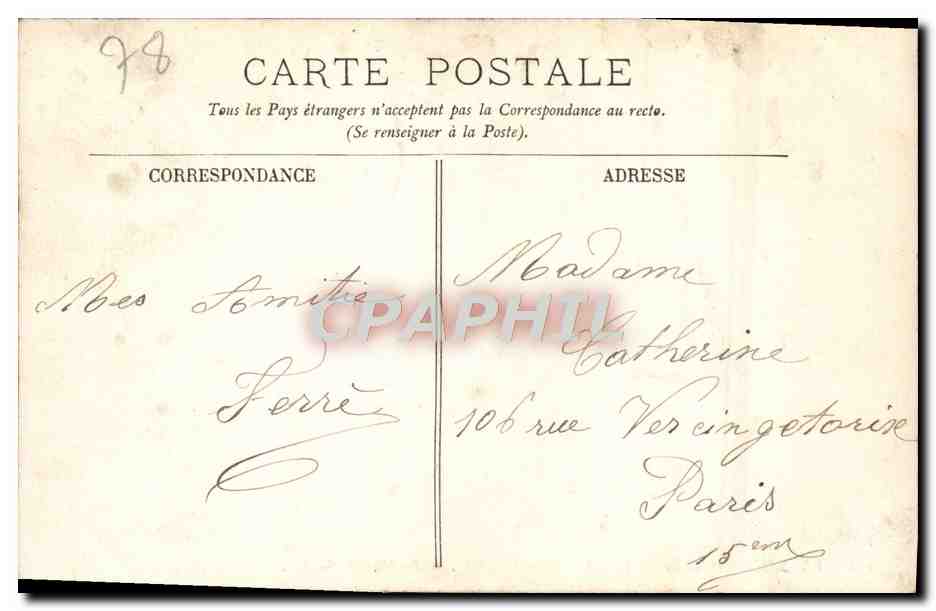 78
CARTE POSTALE
Tous les Pays étrangers n'acceptent pas la Correspondance au recto.
(Se renseigner à la Poste).
CORRESPONDANCE
Mes Amitie
Ferrè
ADRESSE
Madame
Catherine
106 rue Vercingetorixe
Paris
15em
CPAPHIL